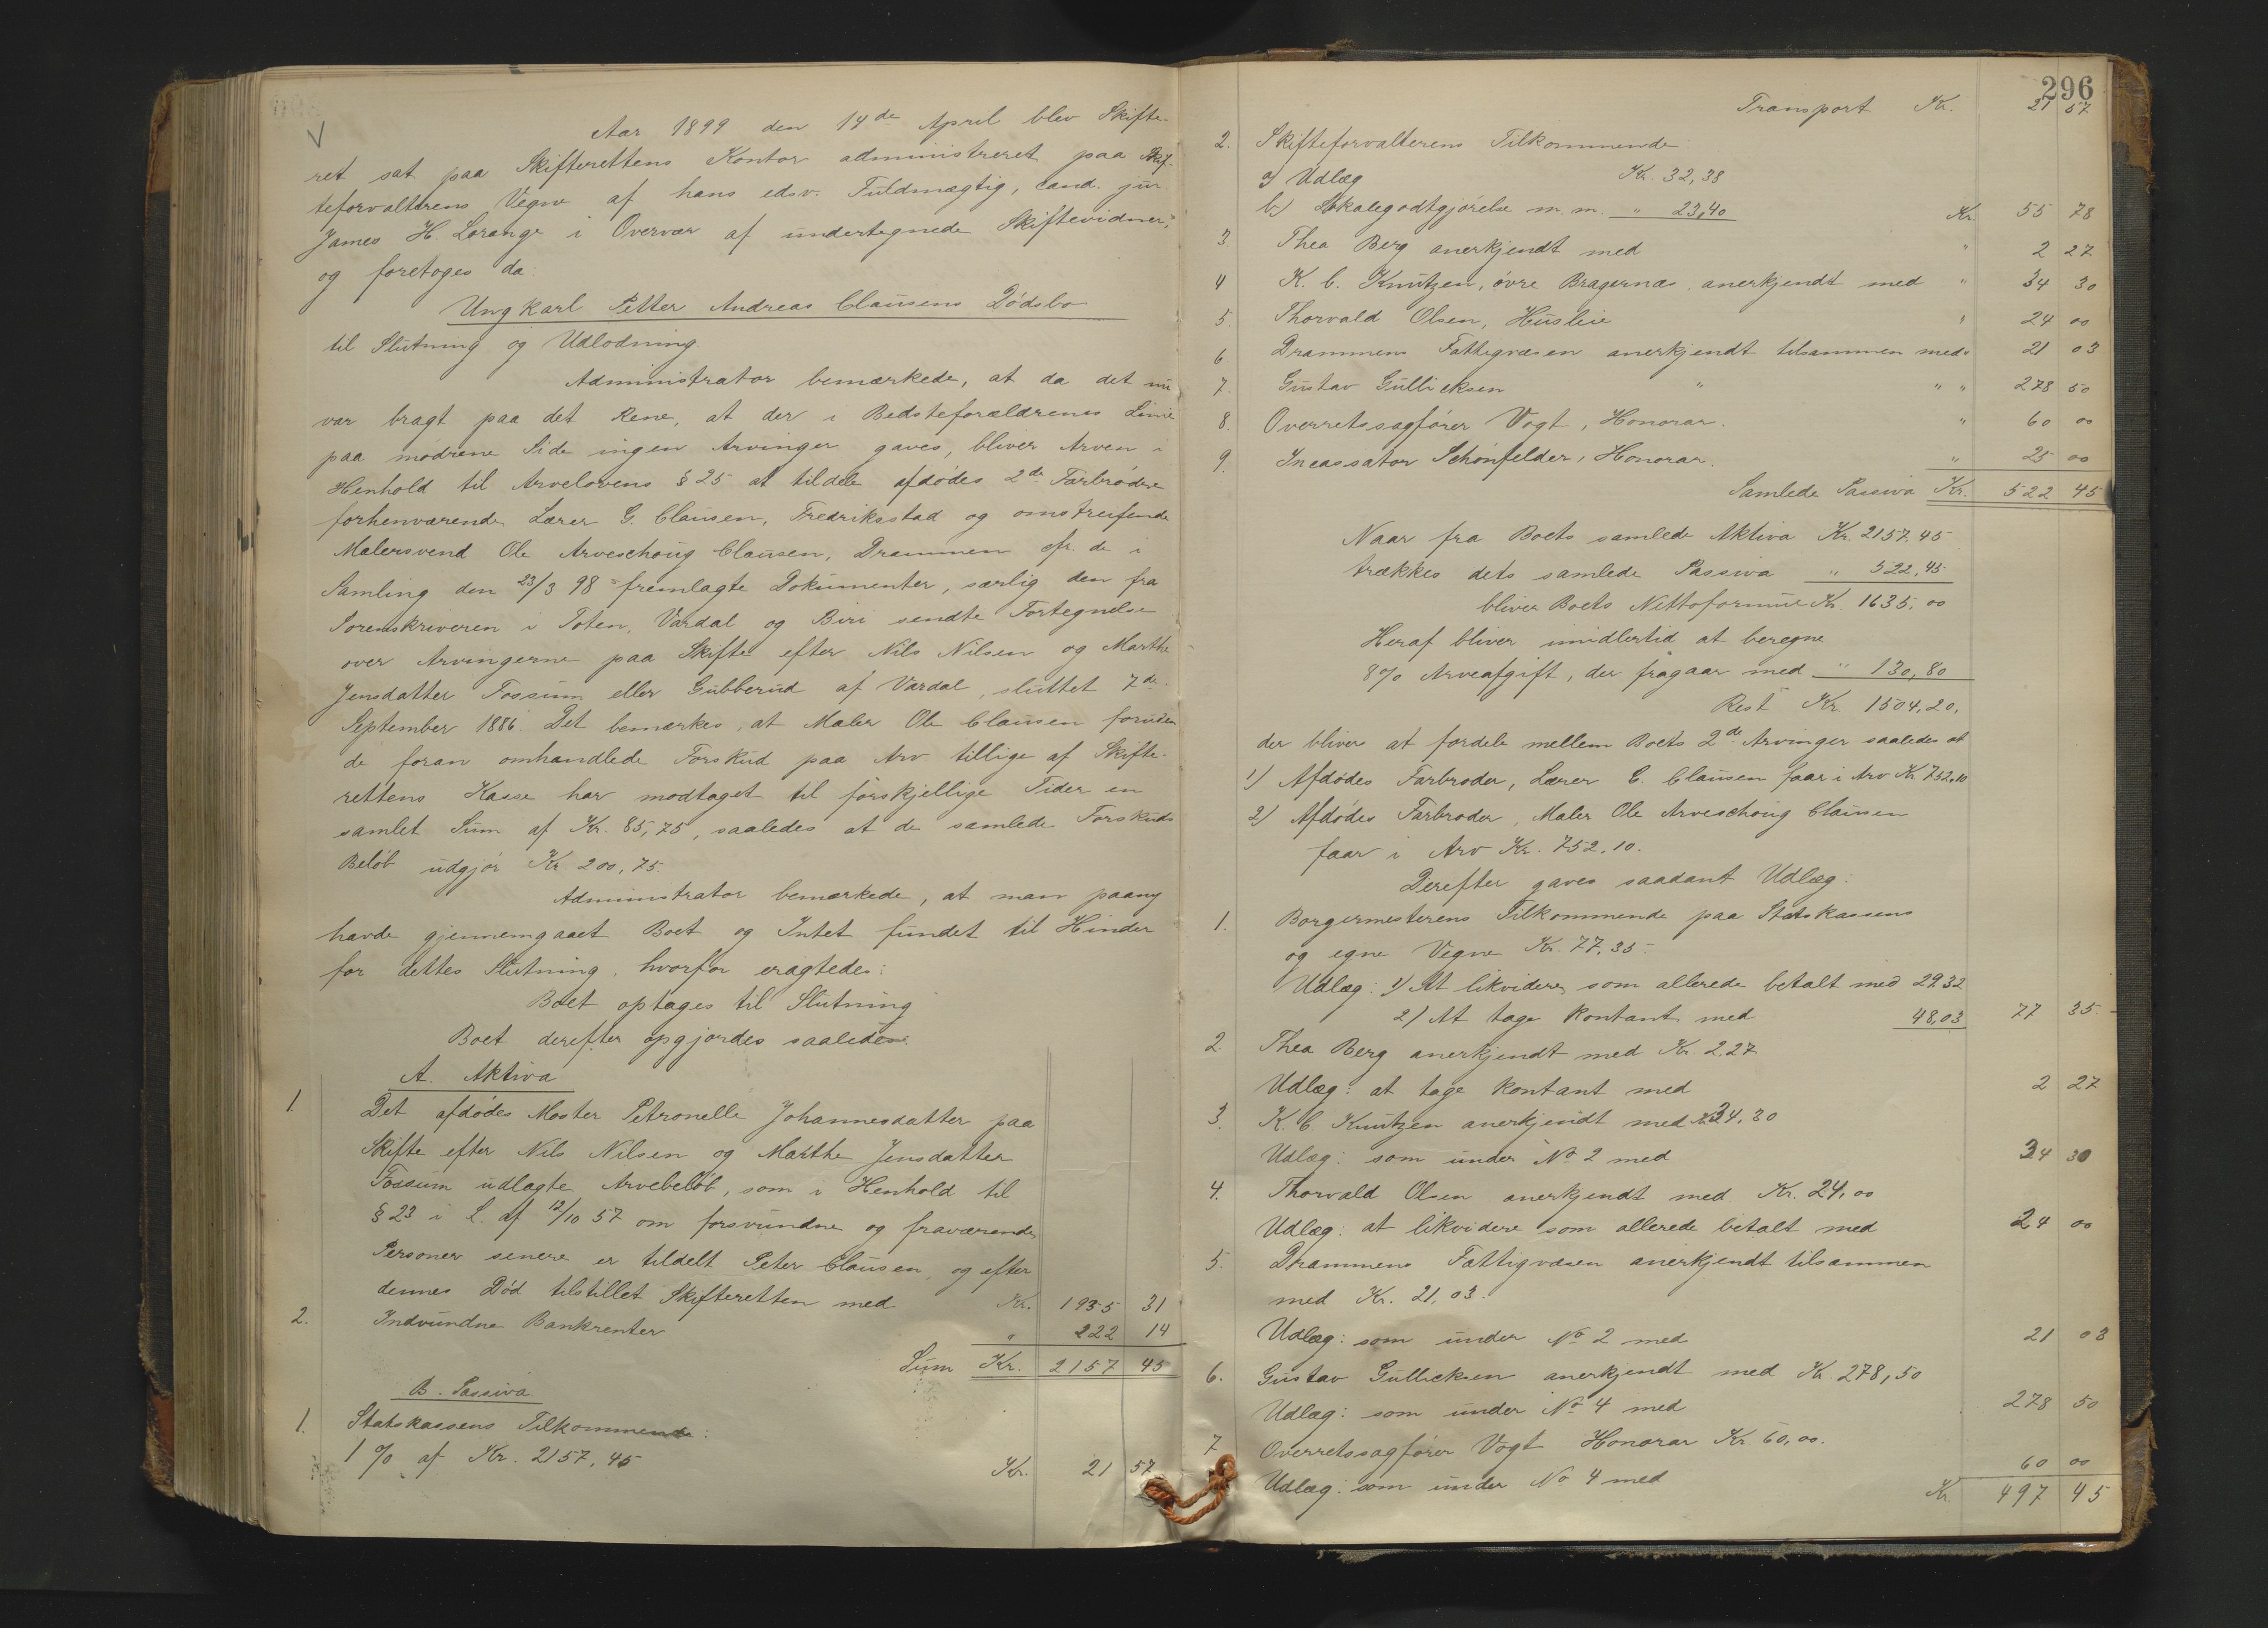 Aar 1899 den 14de April blev Skifte-
ret sat paa Skifterettens Kontor administreret paa Skif-
teforvalterens Vegne af hans edsv. Fuldmægtig, cand. jur.
James H. Lorange i Overvær af undertegnede Skiftevidner,
og foretoges da:
Ungkarl Petter Andreas Clausens Dödsbo
til Slutning og Udlodning.
Administrator bemærkede, at da det nu
var bragt paa det Rene, at der i Bedsteforældrenes Linie
paa mödrene Side ingen Arvinger gaves, bliver Arven i
Henhold til Arvelovens § 25 at tildele afdödes 2de Farbrödre
forhenværende Lærer G. Clausen, Fredriksstad og omstreifende
Malersvend Ole Arveschoug Clausen, Drammen cfr. de i
Samling den 23/3 98 fremlagte Dokumenter, særlig den fra
Sorenskriveren i Toten, Vardal og Biri sendte Fortegnelse
over Arvingerne paa Skifte efter Nils Nilsen og Marthe
Jensdatter Fossum eller Gubberud af Vardal, sluttet 7de
September 1886. Det bemærkes, at Maler Ole Clausen foruden
de foran omhandlede Forskud paa Arv tillige af Skifte-
rettens Kasse har modtaget til forskjellige Tider en
samlet Sum af Kr. 85,75, saaledes at de samlede Forskuds
Belöb udgjör Kr. 200,75.
Administrator bemærkede, at man paany
havde gjennemgaaet Boet og Intet fundet til Hinder
for dettes Slutning, hvorfor eragtedes:
Boet optages til Slutning
Boet derefter opgjordes saaledes:
A. Aktiva
1. Det afdödes Moster Petronelle Johannesdatter paa
Skifte efter Nils Nilsen og Marthe Jensdatter
Fossum udlagte Arvebelöb, som i Henhold til
§ 23 i L. af 12/10 57 om forsvundne og fraværende
Personer senere er tildelt Peter Clausen, og efter
dennes Död tilstillet Skifteretten med Kr. 1935 31
2. Indvundne Bankrenter " 222 14
Sum Kr. 2157 45
B. Passiva.
1. Statskassens Tilkommende:
1 % af Kr. 2157,45 Kr. 21 57
296
Transport Kr. 21 57
2. Skifteforvalterens Tilkommende
a) Udlæg Kr. 32,38
b) Skalegodtgjörelse m. m. " 23,40 Kr. 55 78
3. Thea Berg anerkjendt med " 2 27
4 K. C. Knutzen, övre Bragernæs, anerkjendt med " 34 30
5. Thorvald Olsen, Husleie " 24 00
6 Drammens Fattigvæsen anerkjendt tilsammen med " 21 03
7. Gustav Gullicksen " " " 278 50
8. Overretssagförer Vogt, Honorar. " 60 00
9. Incassator Schönfelder, Honorar. " 25 00
Samlede Passiva Kr. 522 45
Naar fra Boets samlede Aktiva Kr. 2157,45
trækkes dets samlede Passiva " 522,45
bliver Boets Nettoformue Kr. 1635,00
Heraf bliver imidlertid at beregne
8% Arveafgift, der fragaar med " 130,80
Rest Kr. 1504,20,
der bliver at fordele mellem Boets 2de Arvinger saaledes at
1) Afdödes Farbroder, Lærer G. Clausen faar i Arv Kr 752,10
2) Afdödes Farbroder, Maler Ole Arveschoug Clausen
faar i Arv Kr. 752,10.
Derefter gaves saadant Udlæg:
1. Borgermesterens Tilkommende paa Statskassens
og egne Vegne Kr. 77,35
Udlæg: 1) At likvidere som allerede betalt med 29,32
2) At tage kontant med 48,03 77 35
2 Thea Berg anerkjendt med Kr. 2,27
Udlæg: at tage kontant med 2 27
3. K. C. Knutzen anerkjendt med Kr. 34,30
Udlæg: som under No 2 med 34 30
4. Thorvald Olsen anerkjendt med Kr. 24,00
Udlæg: at likvidere som allerede betalt med 24 00
5. Drammens Fattigvæsen anerkjendt tilsammen
med Kr. 21,03.
Udlæg: som under No 2 med 21 03
6. Gustav Gullicksen anerkjendt med Kr. 278,50
Udlæg: som under No 4 med 278 50
7 Overretssagförer Vogt Honorar Kr 60,00.
Udlæg: som under No 4 med 60 00
Kr. 497 45